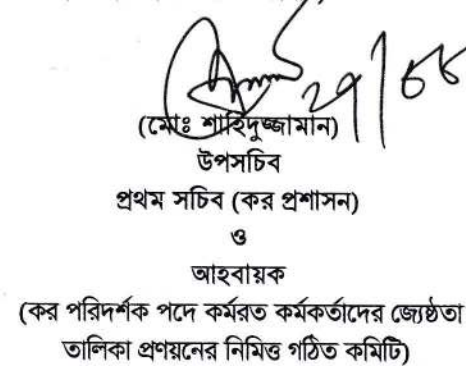 (মোঃ শাহিদুজ্জামান)
উপসচিব
প্রথম সচিব (কর প্রশাসন)
ও
আহবায়ক
(কর পরিদর্শক পদে কর্মরত কর্মকর্তাদের জ্যেষ্ঠতা
তালিকা প্রণয়নের নিমিত্ত গঠিত কমিটি)